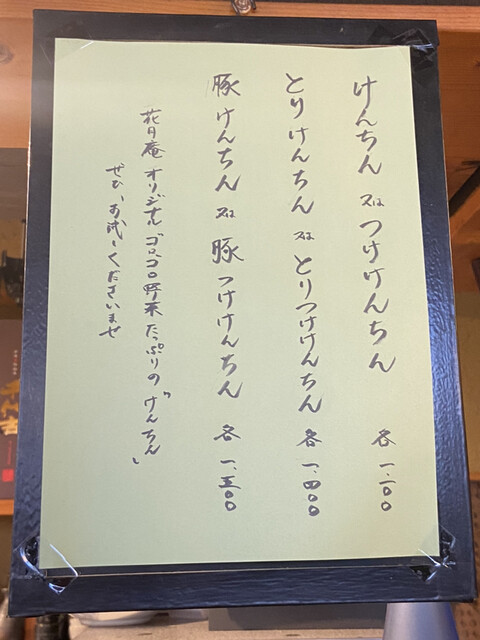 けんちん 又は つけけんちん 各 一、二〇〇
とりけんちん 又は とりつけけんちん 各 一、四〇〇
豚けんちん 又は 豚つけけんちん 各 一、五〇〇
花月庵 オリジナル ゴロゴロ野菜たっぷりの「けんちん」
ぜひ、お試しくださいませ